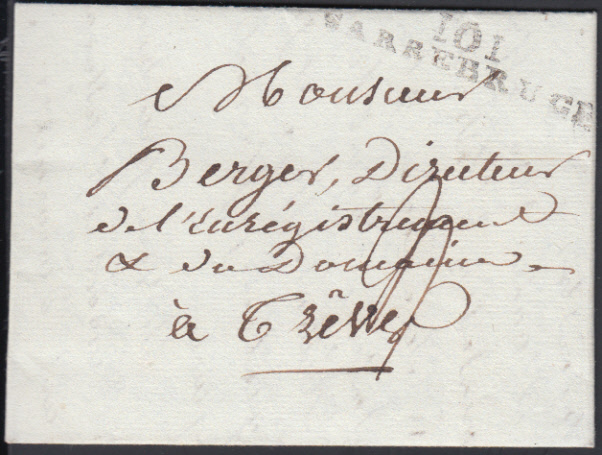 101
SARREBRUGE
Monsieur
Berger, Directeur
de l'Enrégistrement
& du Domaine
à Trêves